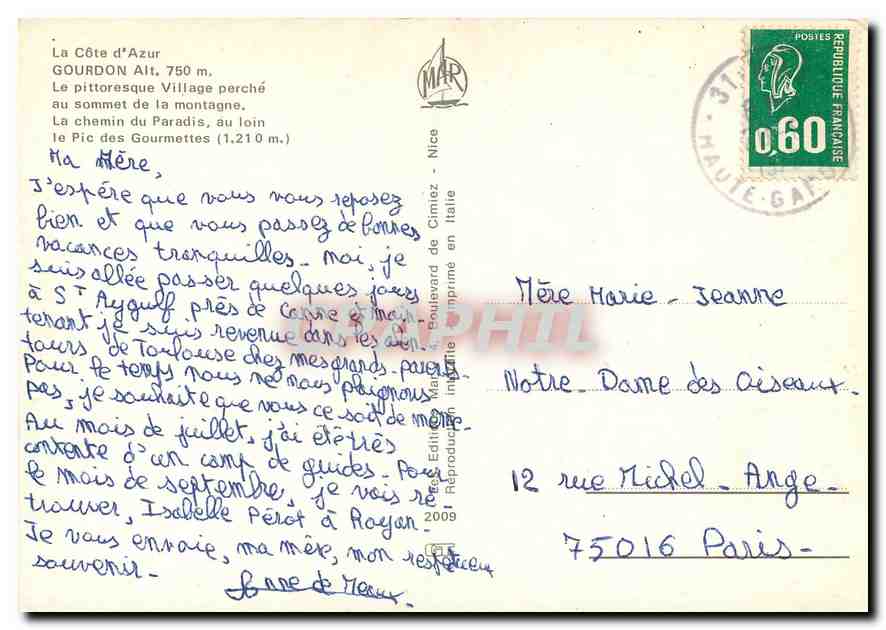 La Côte d'Azur
GOURDON Alt. 750 m.
Le pittoresque Village perché
au sommet de la montagne.
La chemin du Paradis, au loin
le Pic des Gourmettes (1.210 m.)
Ma Mère,
J'espére que vous vous reposez
bien et que vous passez de bonnes
vacances tranquilles - moi, je
suis allée passer quelques jours
à S^T Aygulf près de Canne et main-
tenant je suis revenue dans les alen-
tours de Toulouse chez mes grands-parents-
Pour le temps nous ne nous plaignons
pas, je souhaite que vous ce soit de même-
Au mois de juillet, j'ai été très
contente d'un camp de guides - Pour
le mois de septembre, je vais re-
trouver, Isabelle Pérot à Royan-
Je vous envoie, ma mère, mon respectueux
souvenir-
Anne de Meaux.
MAR
Les Editions Mar - Boulevard de Cimiez - Nice
Reproduction interdite - Imprimé en Italie
2009
GRAPHIL
POSTES
REPUBLIQUE FRANÇAISE
0,60
31
HAUTE-GAR
Mère Marie - Jeanne
Notre - Dame des Oiseaux.
12 rue Michel - Ange -
75016 Paris -